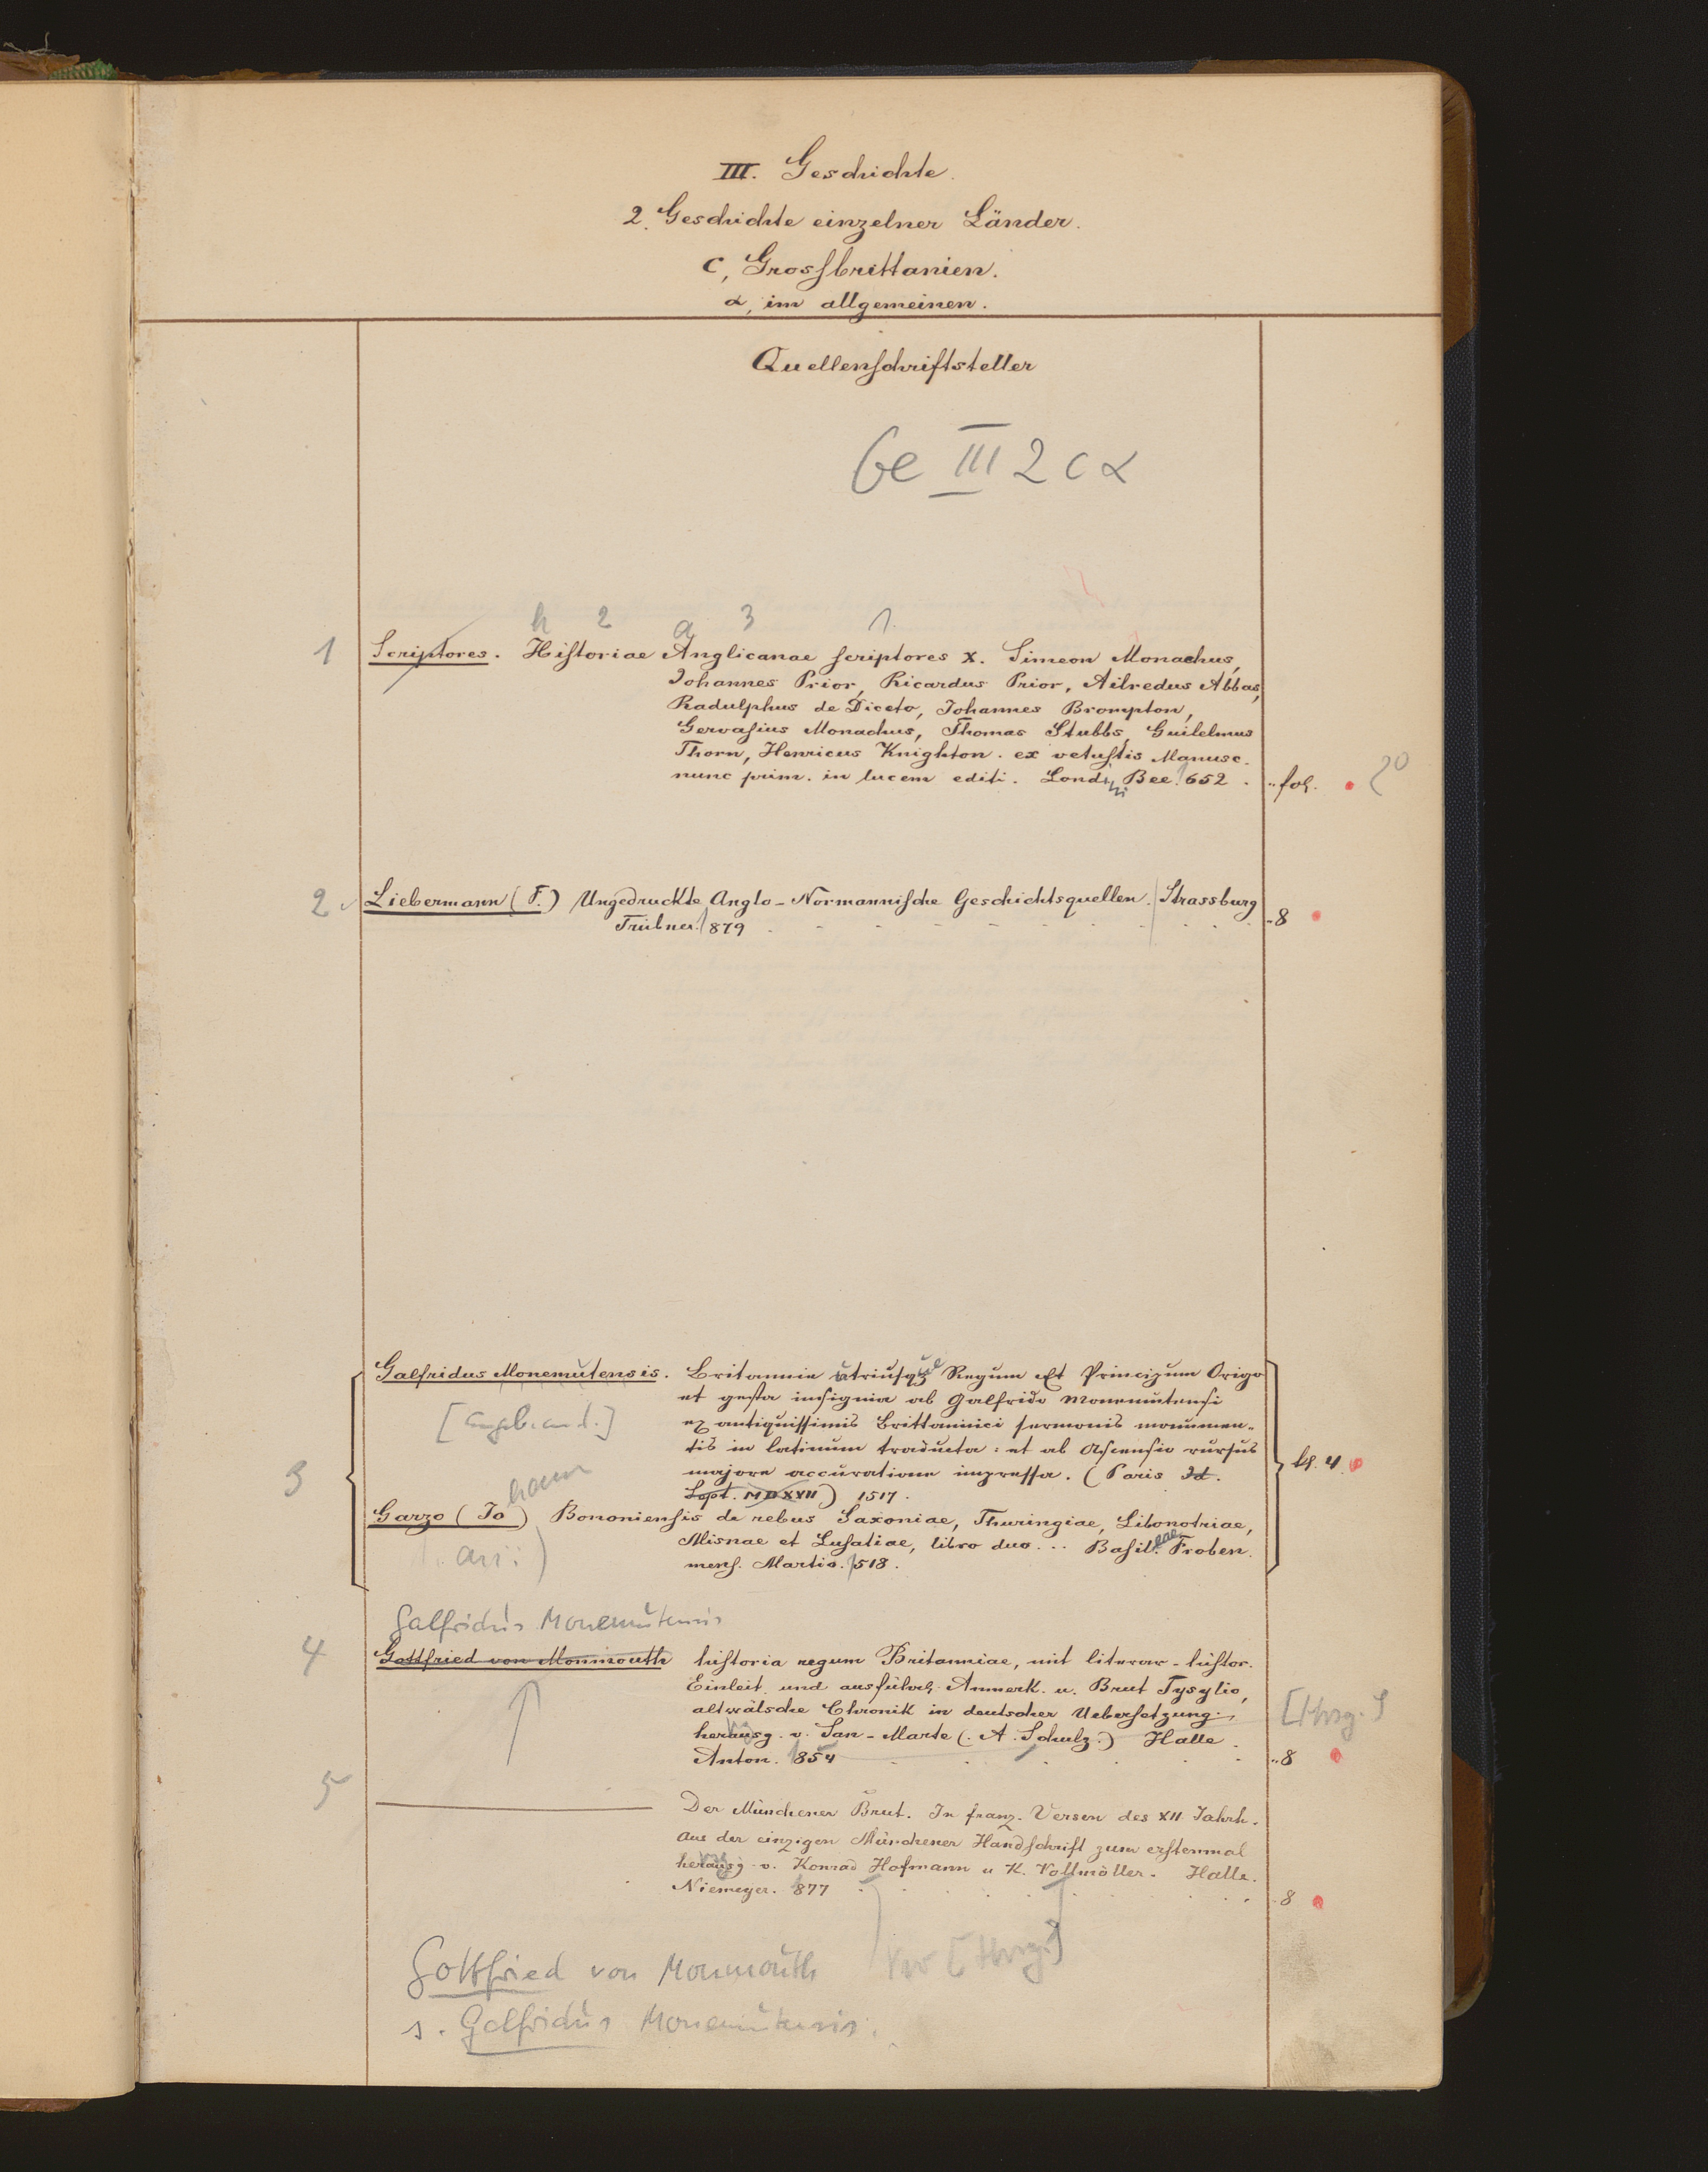 III. Geschichte.
2. Geschichte einzelner Länder.
c, Grossbrittanien.
α, im allgemeinen.
Quellenschriftsteller
Ge III 2 c α
h 2 a 3 1.
1 Scriptores. Historiae Anglicanae scriptores X. Simeon Monachus,
Johannes Prior, Ricardus Prior, Ailredus Abbas,
Radulphus de Diceto, Johannes Brompton,
Gervasius Monachus, Thomas Stubbs, Guilelmus
Thorn, Henricus Knighton. ex vetustis Manusc.
nunc prim. in lucem editi. Londini Bee. 1652. fol. 2°
2 Liebermann (F.) Ungedruckte Anglo-Normannische Geschichtsquellen. Strassburg
Trübner. 1879 8
Galfridus Monemutensis. Britannie utriusque Regum Et Principum Origo
et gesta insignia ab Galfrido Monemutensi
[angeb. and.] ex antiquissimis Brittannici sermonis monumen-
tis in latinum traducta: et ab Ascensio rursus
3 majore accuratione impressa. (Paris Id. kl. 4.
Sept. MDXVII) 1517.
Garzo (Jo hann) Bononiensis de rebus Saxoniae, Thuringiae, Libonotriae,
Misnae et Lusatiae, libro duo... Basileae Froben.
mens. Martio. 1518.
Galfridus Monemutensis
4 Gottfried von Monmouth historia regum Britanniae, mit literar-histor.
Einleit. und ausführl. Anmerk. u. Brut Tysylio,
altwälsche Chronik in deutscher Uebersetzung.
herausg. v. San-Marte (A. Schulz.) Halle. [Hrsg.]
Anton. 1854 8
5 Der Münchener Brut. In franz. Versen des XII Jahrh.
Aus der einzigen Münchener Handschrift zum erstenmal
herausg. v. Konrad Hofmann u K. Vollmöller. Halle.
Niemeyer. 1877 8
Gottfried von Monmouth [Hrsg.]
s. Galfridus Monemutensis.